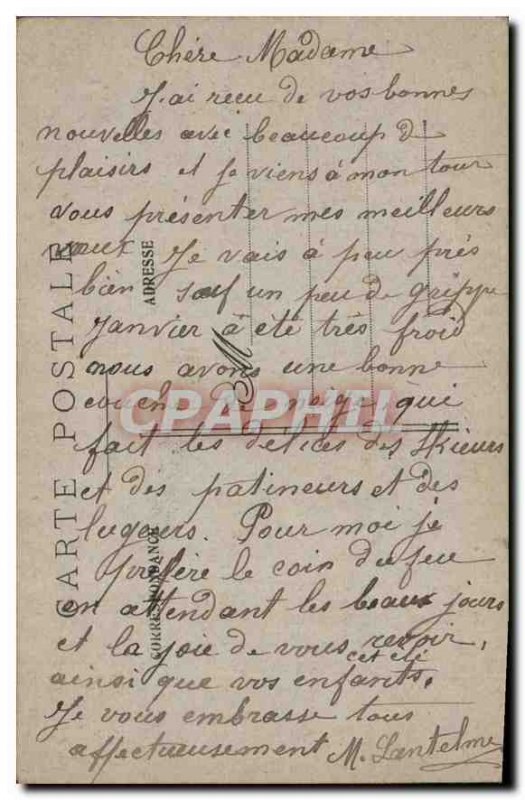 Chère Madame
J'ai recu de vos bonnes
nouvelles avec beaucoup de
plaisirs et je viens à mon tour
vous présenter mes meilleurs
vœux Je vais à peu près
bien sauf un peu de grippe
Janvier à été très froid
nous avons une bonne
couche de neige qui
fait les délices des Skieurs
et des patineurs et des
lugeurs. Pour moi je
préfère le coin du feu
en attendant les beaux jours
et la joie de vous revoir,
cet été
ainsi que vos enfants.
Je vous embrasse tous
affectueusement M. Lantelme
CARTE POSTALE
ADRESSE
CORRESPONDANCE
M
CPAPHIL